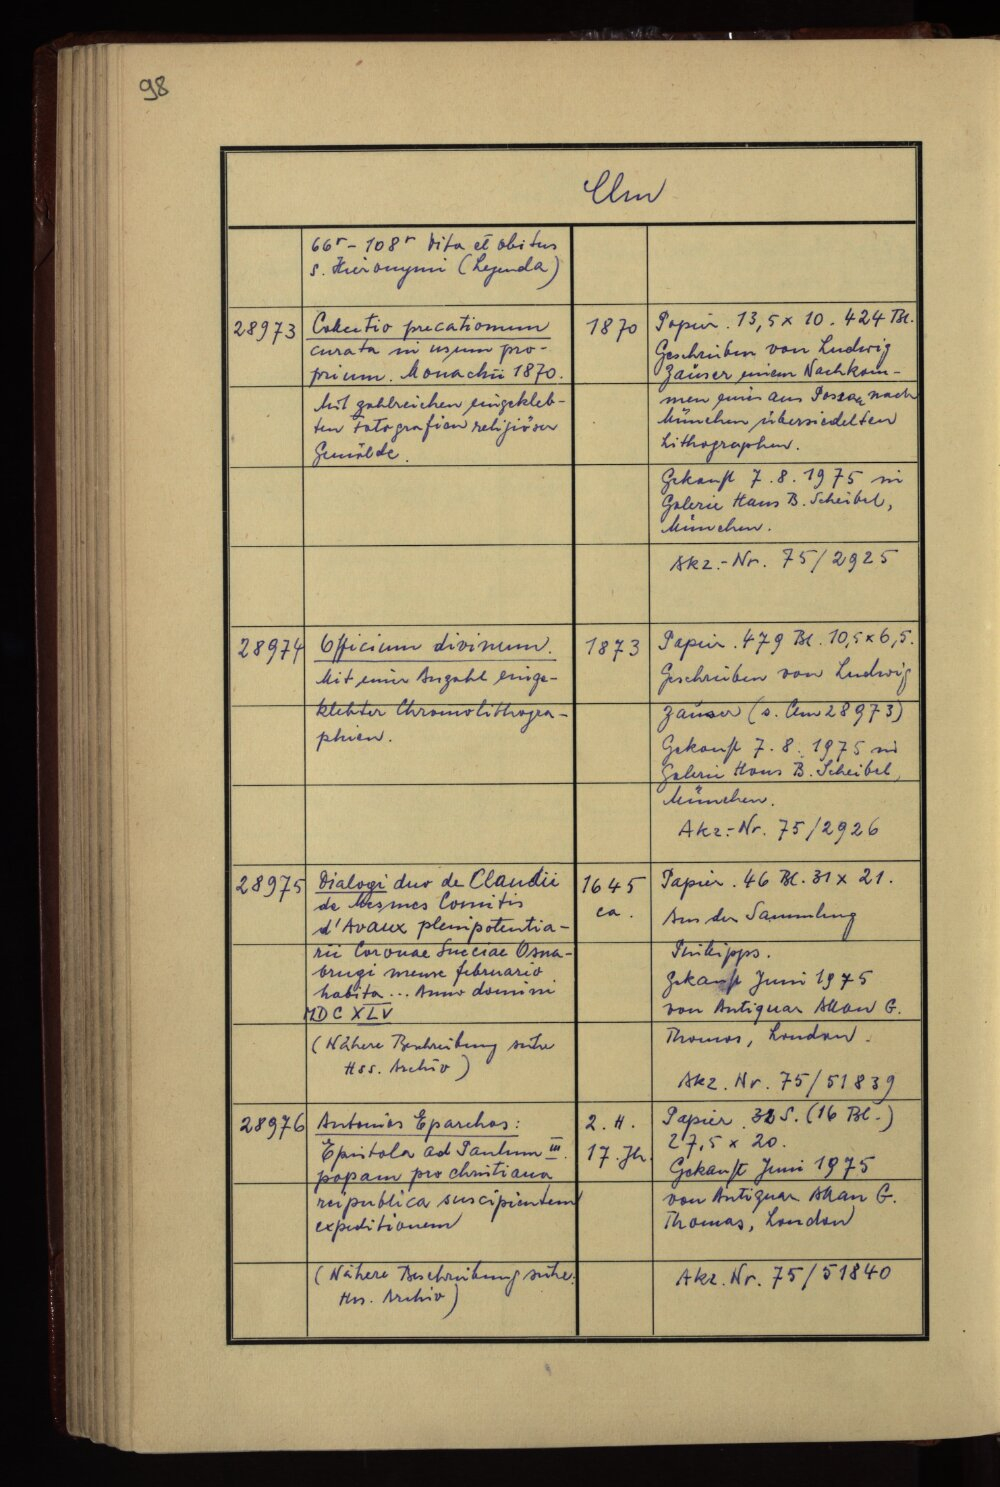 98
Clm
66r - 108r Vita et obitus
s. Hieronymi (Legenda)
28973
Collectio precationum
curata in usum pro-
prium. Monachii 1870.
Mit zahlreichen eingekleb-
ten Fotografien religiöser
Gemälde.
1870
Papier. 13,5 x 10. 424 Bl.
Geschrieben von Ludwig
Zäuser einem Nachkom-
men eines aus Passau nach
München übersiedelten
Lithographen.
Gekauft 7.8.1975 in
Galerie Hans B. Scheibel,
München.
Akz.-Nr. 75/2925
28974
Officium divinum.
Mit einer Anzahl einge-
klebter Chromolithogra-
phien.
1873
Papier. 479 Bl. 10,5 x 6,5.
Geschrieben von Ludwig
Zäuser (s. Clm 28973)
Gekauft 7.8.1975 in
Galerie Hans B. Scheibel,
München.
Akz.-Nr. 75/2926
28975
Dialogi duo de Claudii
de Mesmes Comitis
d'Avaux plenipotentia-
rii Coronae Sueciae Osna-
brugi mense februario
habita ... Anno domini
MDCXLV
(Nähere Beschreibung siehe
Hss. Archiv)
1645
ca.
Papier. 46 Bl. 31 x 21.
Aus der Sammlung
Philipps.
Gekauft Juni 1975
von Antiquar Allan G.
Thomas, London.
Akz. Nr. 75/51839
28976
Antonios Eparchos:
Epistola ad Paulum III.
papam pro christiana
republica suscipientem
expeditionem
(Nähere Beschreibung siehe
Hss. Archiv)
2. H.
17. Jh.
Papier. 32 S. (16 Bl.)
27,5 x 20.
Gekauft Juni 1975
von Antiquar Allan G.
Thomas, London
Akz. Nr. 75/51840